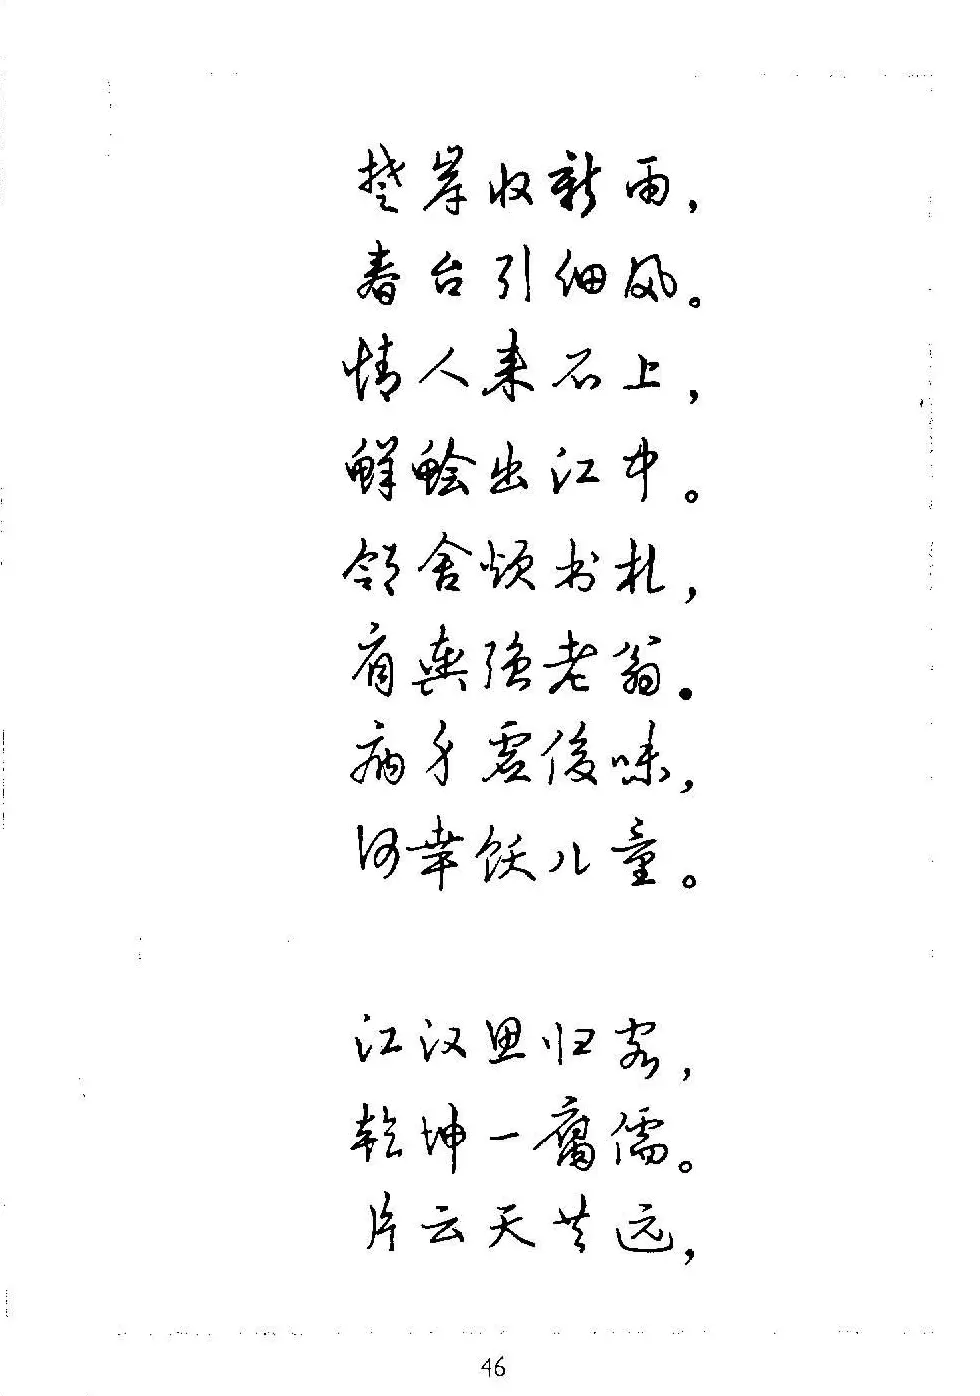 楚岸收新雨，
春台引细风。
情人来石上，
鲜鲙出江中。
邻舍烦书札，
肩舆强老翁。
病身虚俊味，
何幸饫儿童。
江汉思归客，
乾坤一腐儒。
片云天共远，
46